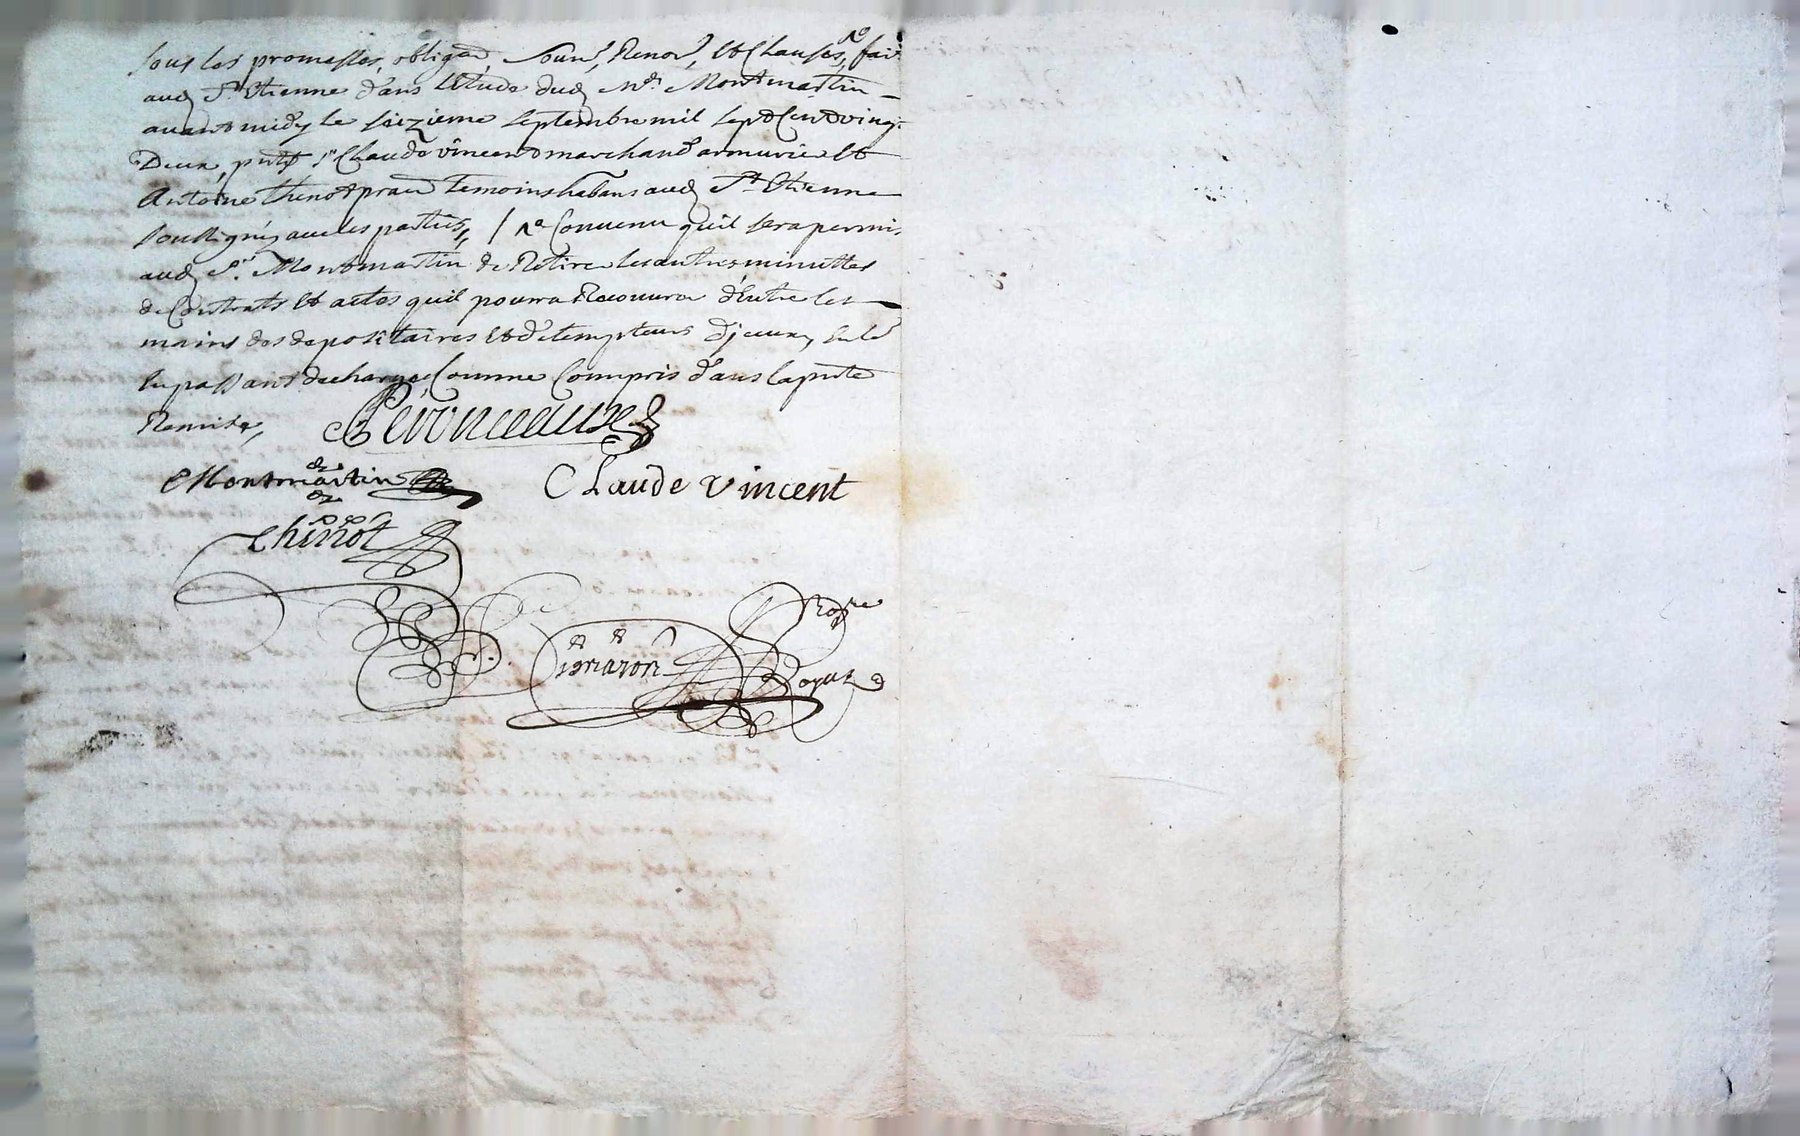 sous les promesses, obligaõn, soum̃, Renoñ, et Clauses, fait
aud St Etienne dans l'Etude dud Me Montmartin
avant midy le seizieme septembre mil sept Cent vingt
Deux, pntz sr Claude vincent marchand armurier et
Antoine thinot praen temoins habans aud St Etienne
soussignéz avec les parties, / Convenu quil sera permis
aud Sr Montmartin de Retirer les autres minuttes
de Contrats et actes quil pourra Recouvrer d'Entre les
mains des depositaires et detempteurs d'jceux, en le
leur passant decharge Comme Compris dans la pnte
Remise,
Peronceaux
Montmartin Claude vincent
thinot
nore
Royal